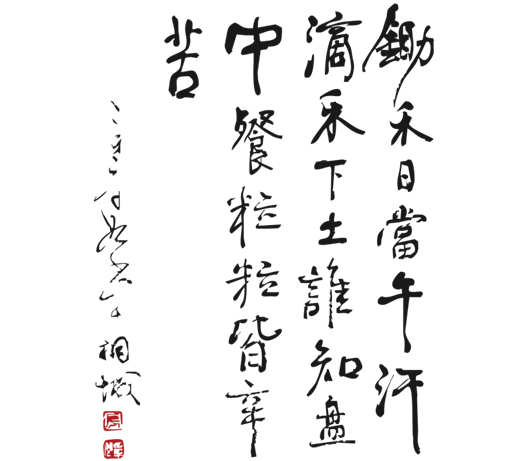 鋤禾日當午汗
滴禾下土誰知盤
中餐粒粒皆辛
苦
桐城